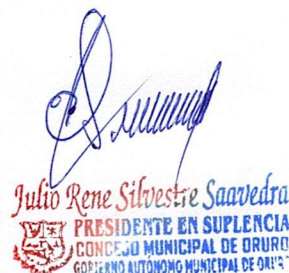 Julio Rene Silvestre Saavedra
PRESIDENTE EN SUPLENCIA
CONCEJO MUNICIPAL DE ORURO
GOBIERNO AUTÓNOMO MUNICIPAL DE ORURO